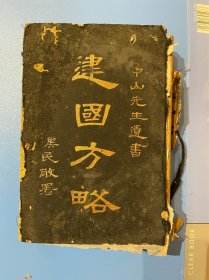 中山先生遺書
建國方略
吴民敬署
CLEAR BOOK